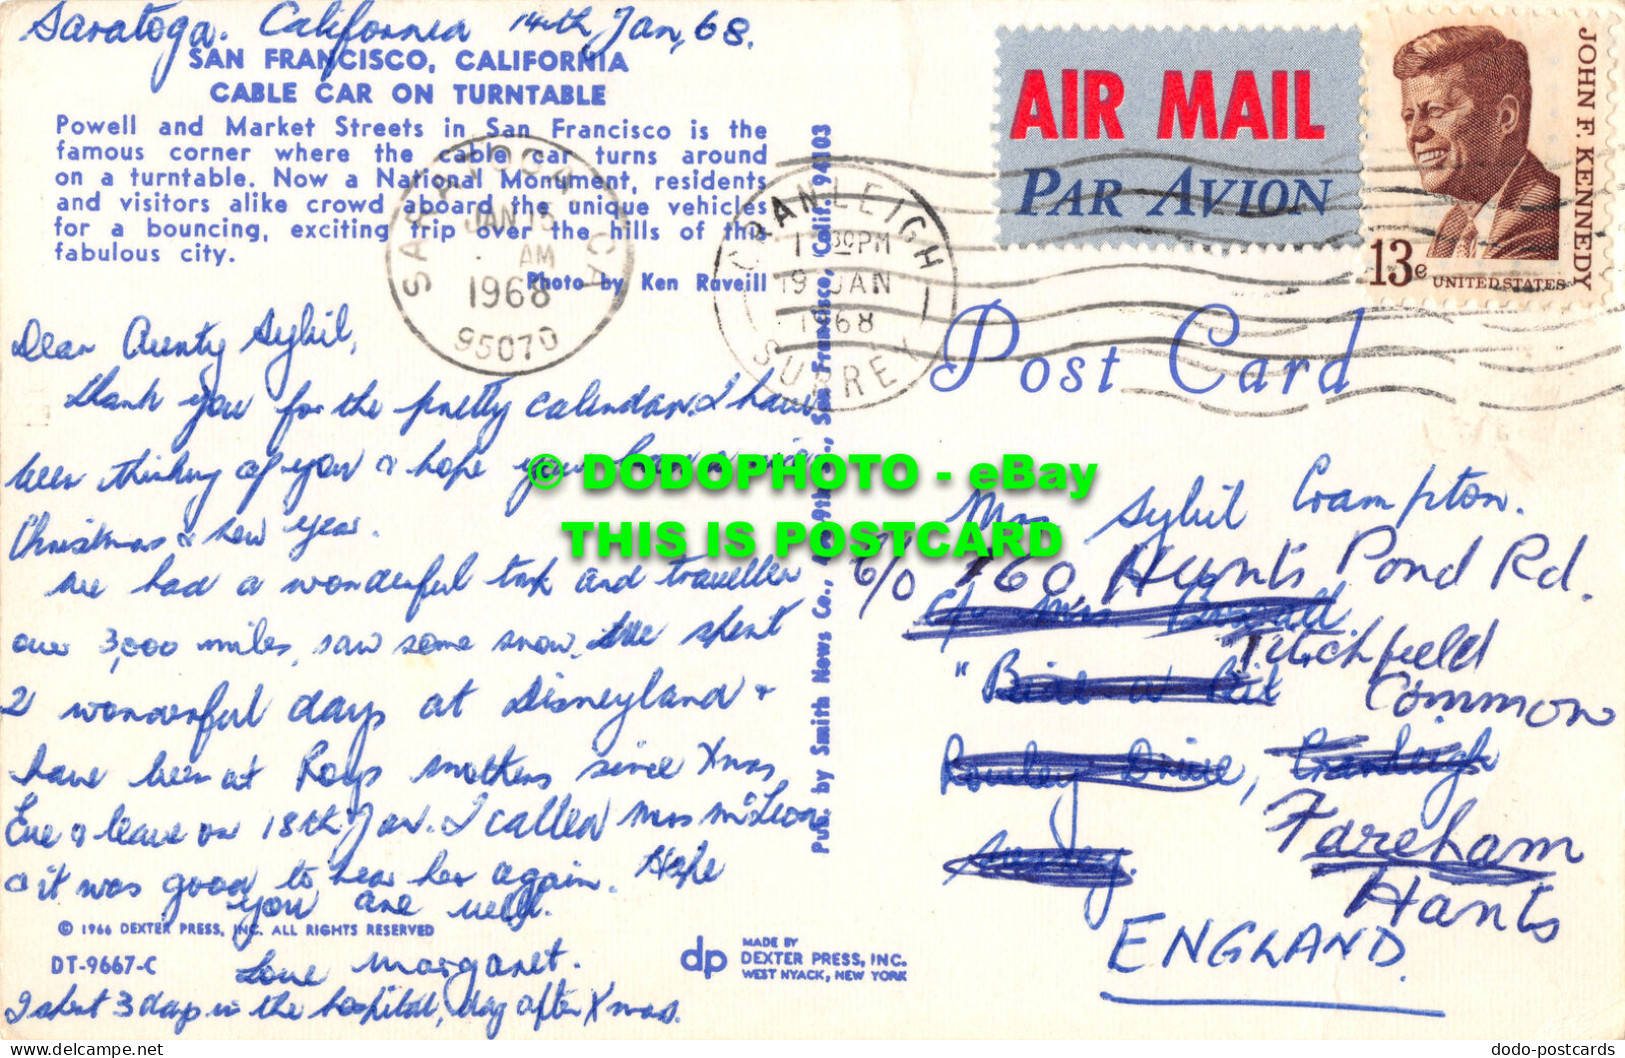 Saratoga. California 14th Jan, 68.
SAN FRANCISCO, CALIFORNIA
CABLE CAR ON TURNTABLE
Powell and Market Streets in San Francisco is the
famous corner where the cable car turns around
on a turntable. Now a National Monument, residents
and visitors alike crowd aboard the unique vehicles
for a bouncing, exciting trip over the hills of this
fabulous city.
Photo by Ken Raveill
SARATOGA CA
JAN 15
AM
1968
95070
CRANLEIGH
30 PM
19 JAN
1968
SURREY
AIR MAIL
PAR AVION
JOHN F. KENNEDY
13c
UNITED STATES
Post Card
Dear Aunty Sybil,
thank you for the pretty calendar. I have
been thinking of you & hope you have a nice
Christmas & new year.
We had a wonderful trek and traveller
over 3,000 miles, saw some snow. We spent
2 wonderful days at Disneyland &
have been at Roys mothers since Xmas
Eve & leave on 18th Jan. I called Mrs McLeon
& it was good to hear her again. Hope
you are well.
© 1966 DEXTER PRESS, INC. ALL RIGHTS RESERVED
DT-9667-C
Love Margaret.
I spent 3 days in the hospital, day after Xmas.
Pub. by Smith News Co., 9th St., San Francisco, Calif. 94103
dp MADE BY
DEXTER PRESS, INC.
WEST NYACK, NEW YORK
Mrs Sybil Crampton.
c/o 160, Hunts Pond Rd.
c/o Mrs
Titchfield
Common
Rowley Drive, Cranleigh
Fareham
Surrey.
Hants
ENGLAND.
© DODOPHOTO - eBay
THIS IS POSTCARD
dodo-postcards